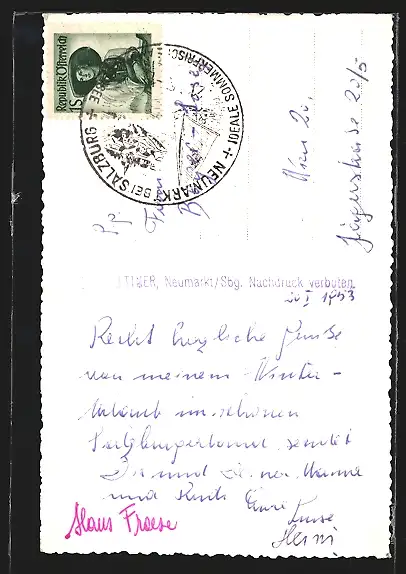 Republik Österreich
1S
NEUMARKT BEI SALZBURG + IDEALE SOMMERFRISCHE
P.p.
Wien 20,
Jägerstraße 20/5
Neumarkt/Sbg. Nachdruck verboten.
1953
Recht herzliche Grüße
von meinem Winter-
Urlaub im schönen
Salzburgerland sendet
Dir und Deiner Mama
und
Hans Froese